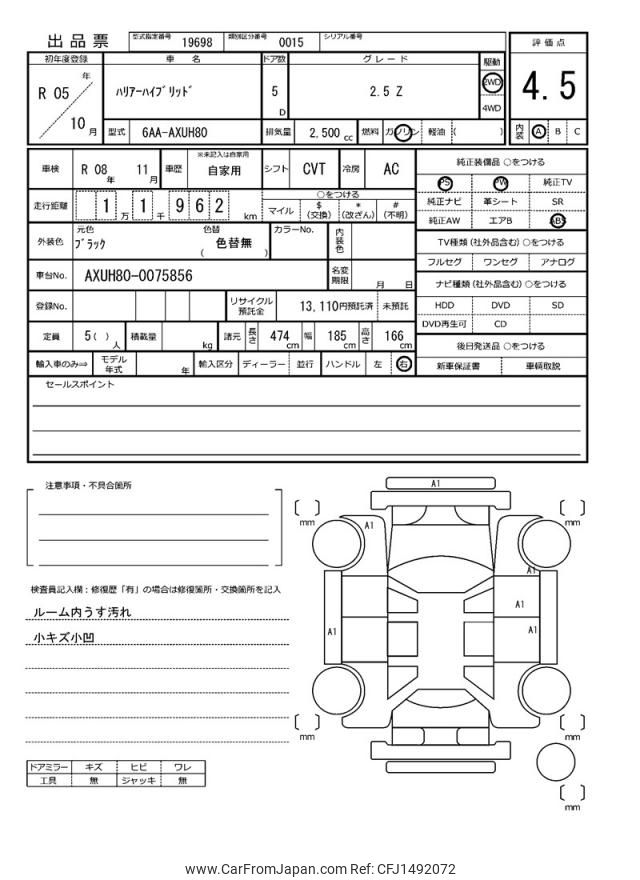 出品票 型式指定番号 19698 類別区分番号 0015 シリアル番号
評価点
4.5
内装 A B C
初年度登録 車名 ドア数 グレード 駆動
R 05 年 10 月 ﾊﾘｱｰﾊｲﾌﾞﾘｯﾄﾞ 5 D 2.5 Z 2WD 4WD
型式 6AA-AXUH80 排気量 2,500 cc 燃料 ガソリン 軽油 ( )
車検 R 08 年 11 月 車歴 ※未記入は自家用 自家用 シフト CVT 冷房 AC
走行距離 1 万 1 千 9 6 2 km
○をつける
マイル $ (交換) * (改ざん) # (不明)
外装色 元色 ﾌﾞﾗｯｸ 色替 ( 色替無 ) カラーNo. 内装色
車台No. AXUH80-0075856 名変期限 月 日
登録No. リサイクル預託金 13,110円預託済 未預託
定員 5( ) 人 積載量 kg 諸元 長さ 474 cm 幅 185 cm 高さ 166 cm
輸入車のみ⇒ モデル年式 年 輸入区分 ディーラー 並行 ハンドル 左 右
純正装備品 ○をつける
PS PW 純正TV
純正ナビ 革シート SR
純正AW エアB ABS
TV種類(社外品含む) ○をつける
フルセグ ワンセグ アナログ
ナビ種類(社外品含む) ○をつける
HDD DVD SD
DVD再生可 CD
後日発送品 ○をつける
新車保証書 車輌取説
セールスポイント
注意事項・不具合箇所
検査員記入欄：修復歴「有」の場合は修復箇所・交換箇所を記入
ルーム内うす汚れ
小キズ小凹
ドアミラー キズ ヒビ ワレ
工具 無 ジャッキ 無
A1
A1
A1
A1
A1
A1
mm
mm
mm
mm
mm
www.CarFromJapan.com Ref: CFJ1492072